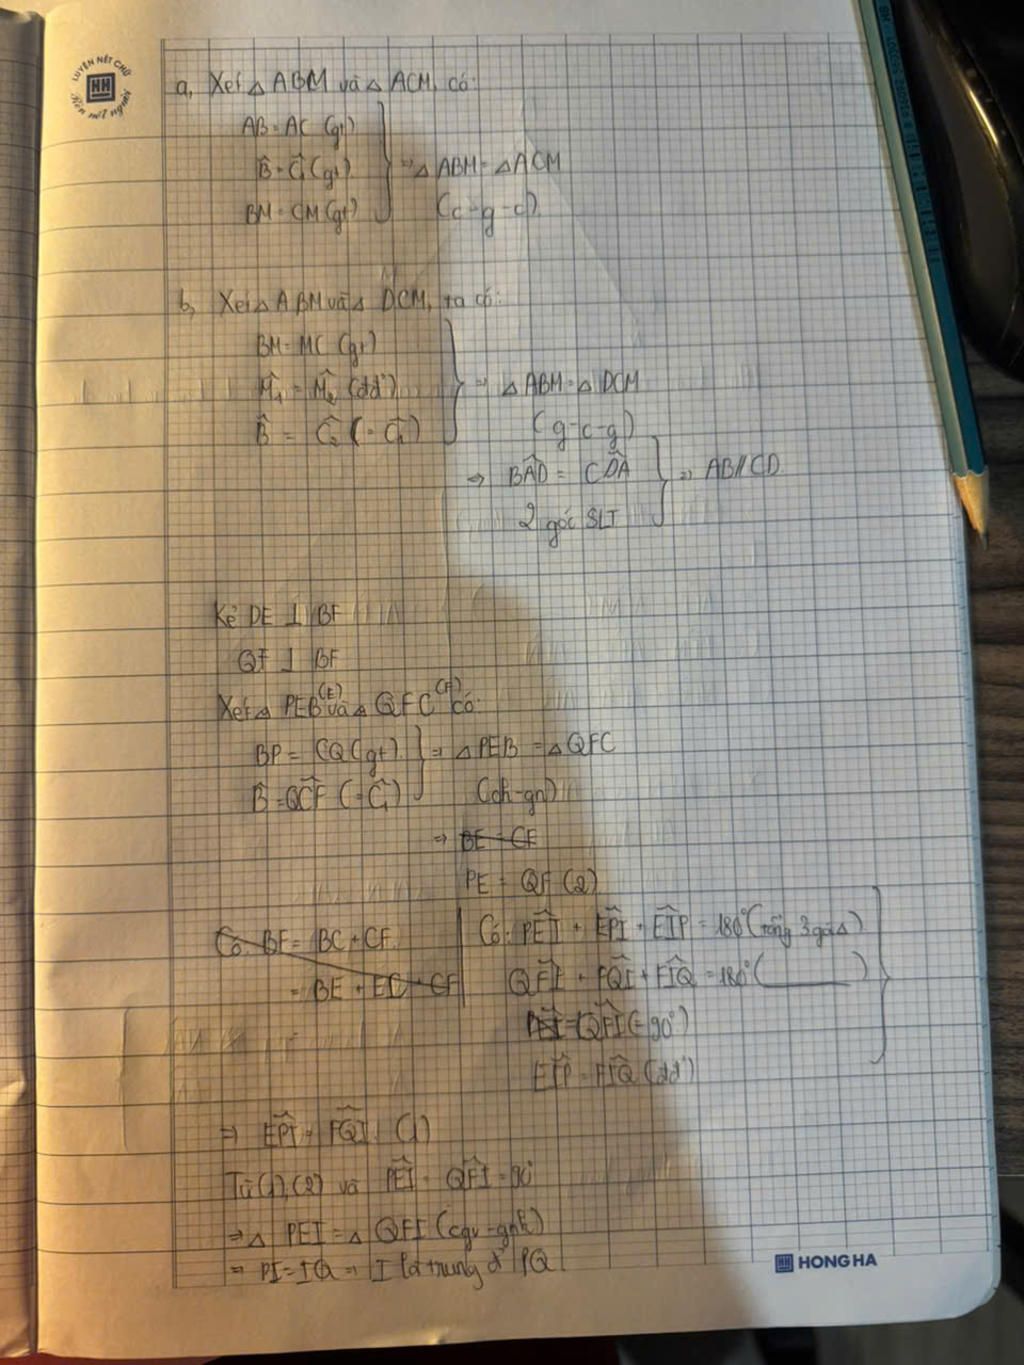 LUYỆN NÉT CHỮ
HH
Rèn nết người
a, Xét △ ABM và △ ACM, có:
AB = AC (gt)
B̂ = Ĉ₁ (gt) ⇒ △ ABM = △ ACM
BM = CM (gt) (c-g-c)
b, Xét △ ABM và △ DCM, ta có:
BM = MC (gt)
M̂₁ = M̂₂ (đđ) ⇒ △ ABM = △ DCM
B̂ = Ĉ₂ (= Ĉ₁) (g-c-g)
⇒ BÂD = CD̂A ⇒ AB // CD
2 góc SLT
Kẻ PE ⊥ BF
QF ⊥ BF
Xét △ PEB (Ê) và △ QFC (F̂) có:
BP = CQ (gt) ⇒ △ PEB = △ QFC
B̂ = QĈF (= Ĉ₁) (ch-gn)
⇒ BE = CF
PE = QF (2)
Có: BF = BC + CF
= BE + EC + CF
=
Có: PÊI + EP̂I + EÎP = 180° (tổng 3 góc △)
QF̂I + FQ̂I + FÎQ = 180° (
PÊI = QF̂I (= 90°)
EÎP = FÎQ (đđ)
⇒ EP̂I = FQ̂I (1)
Từ (1), (2) và PÊI = QF̂I = 90°
⇒ △ PEI = △ QFI (cgv-gnk)
⇒ PI = IQ ⇒ I là trung đ' PQ
HH HONG HA